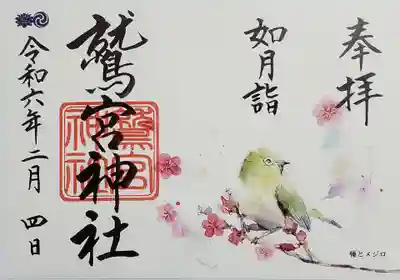 奉拝
如月詣
鷲宮神社
鷲宮神社
令和六年二月 四日
梅とメジロ